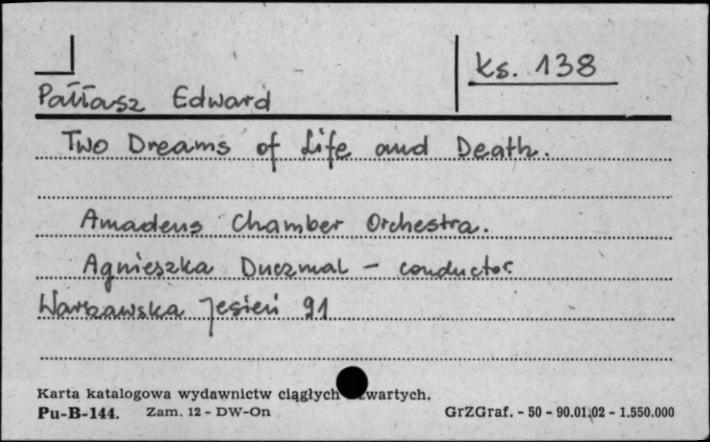 ks. 138
Pałłasz Edward
Two Dreams of Life and Death.
Amadeus Chamber Orchestra.
Agnieszka Duczmal - conductor
Warszawska Jesień 91
Karta katalogowa wydawnictw ciągłych zwartych.
Pu-B-144. Zam. 12 - DW-On GrZGraf. - 50 - 90.01.02 - 1.550.000